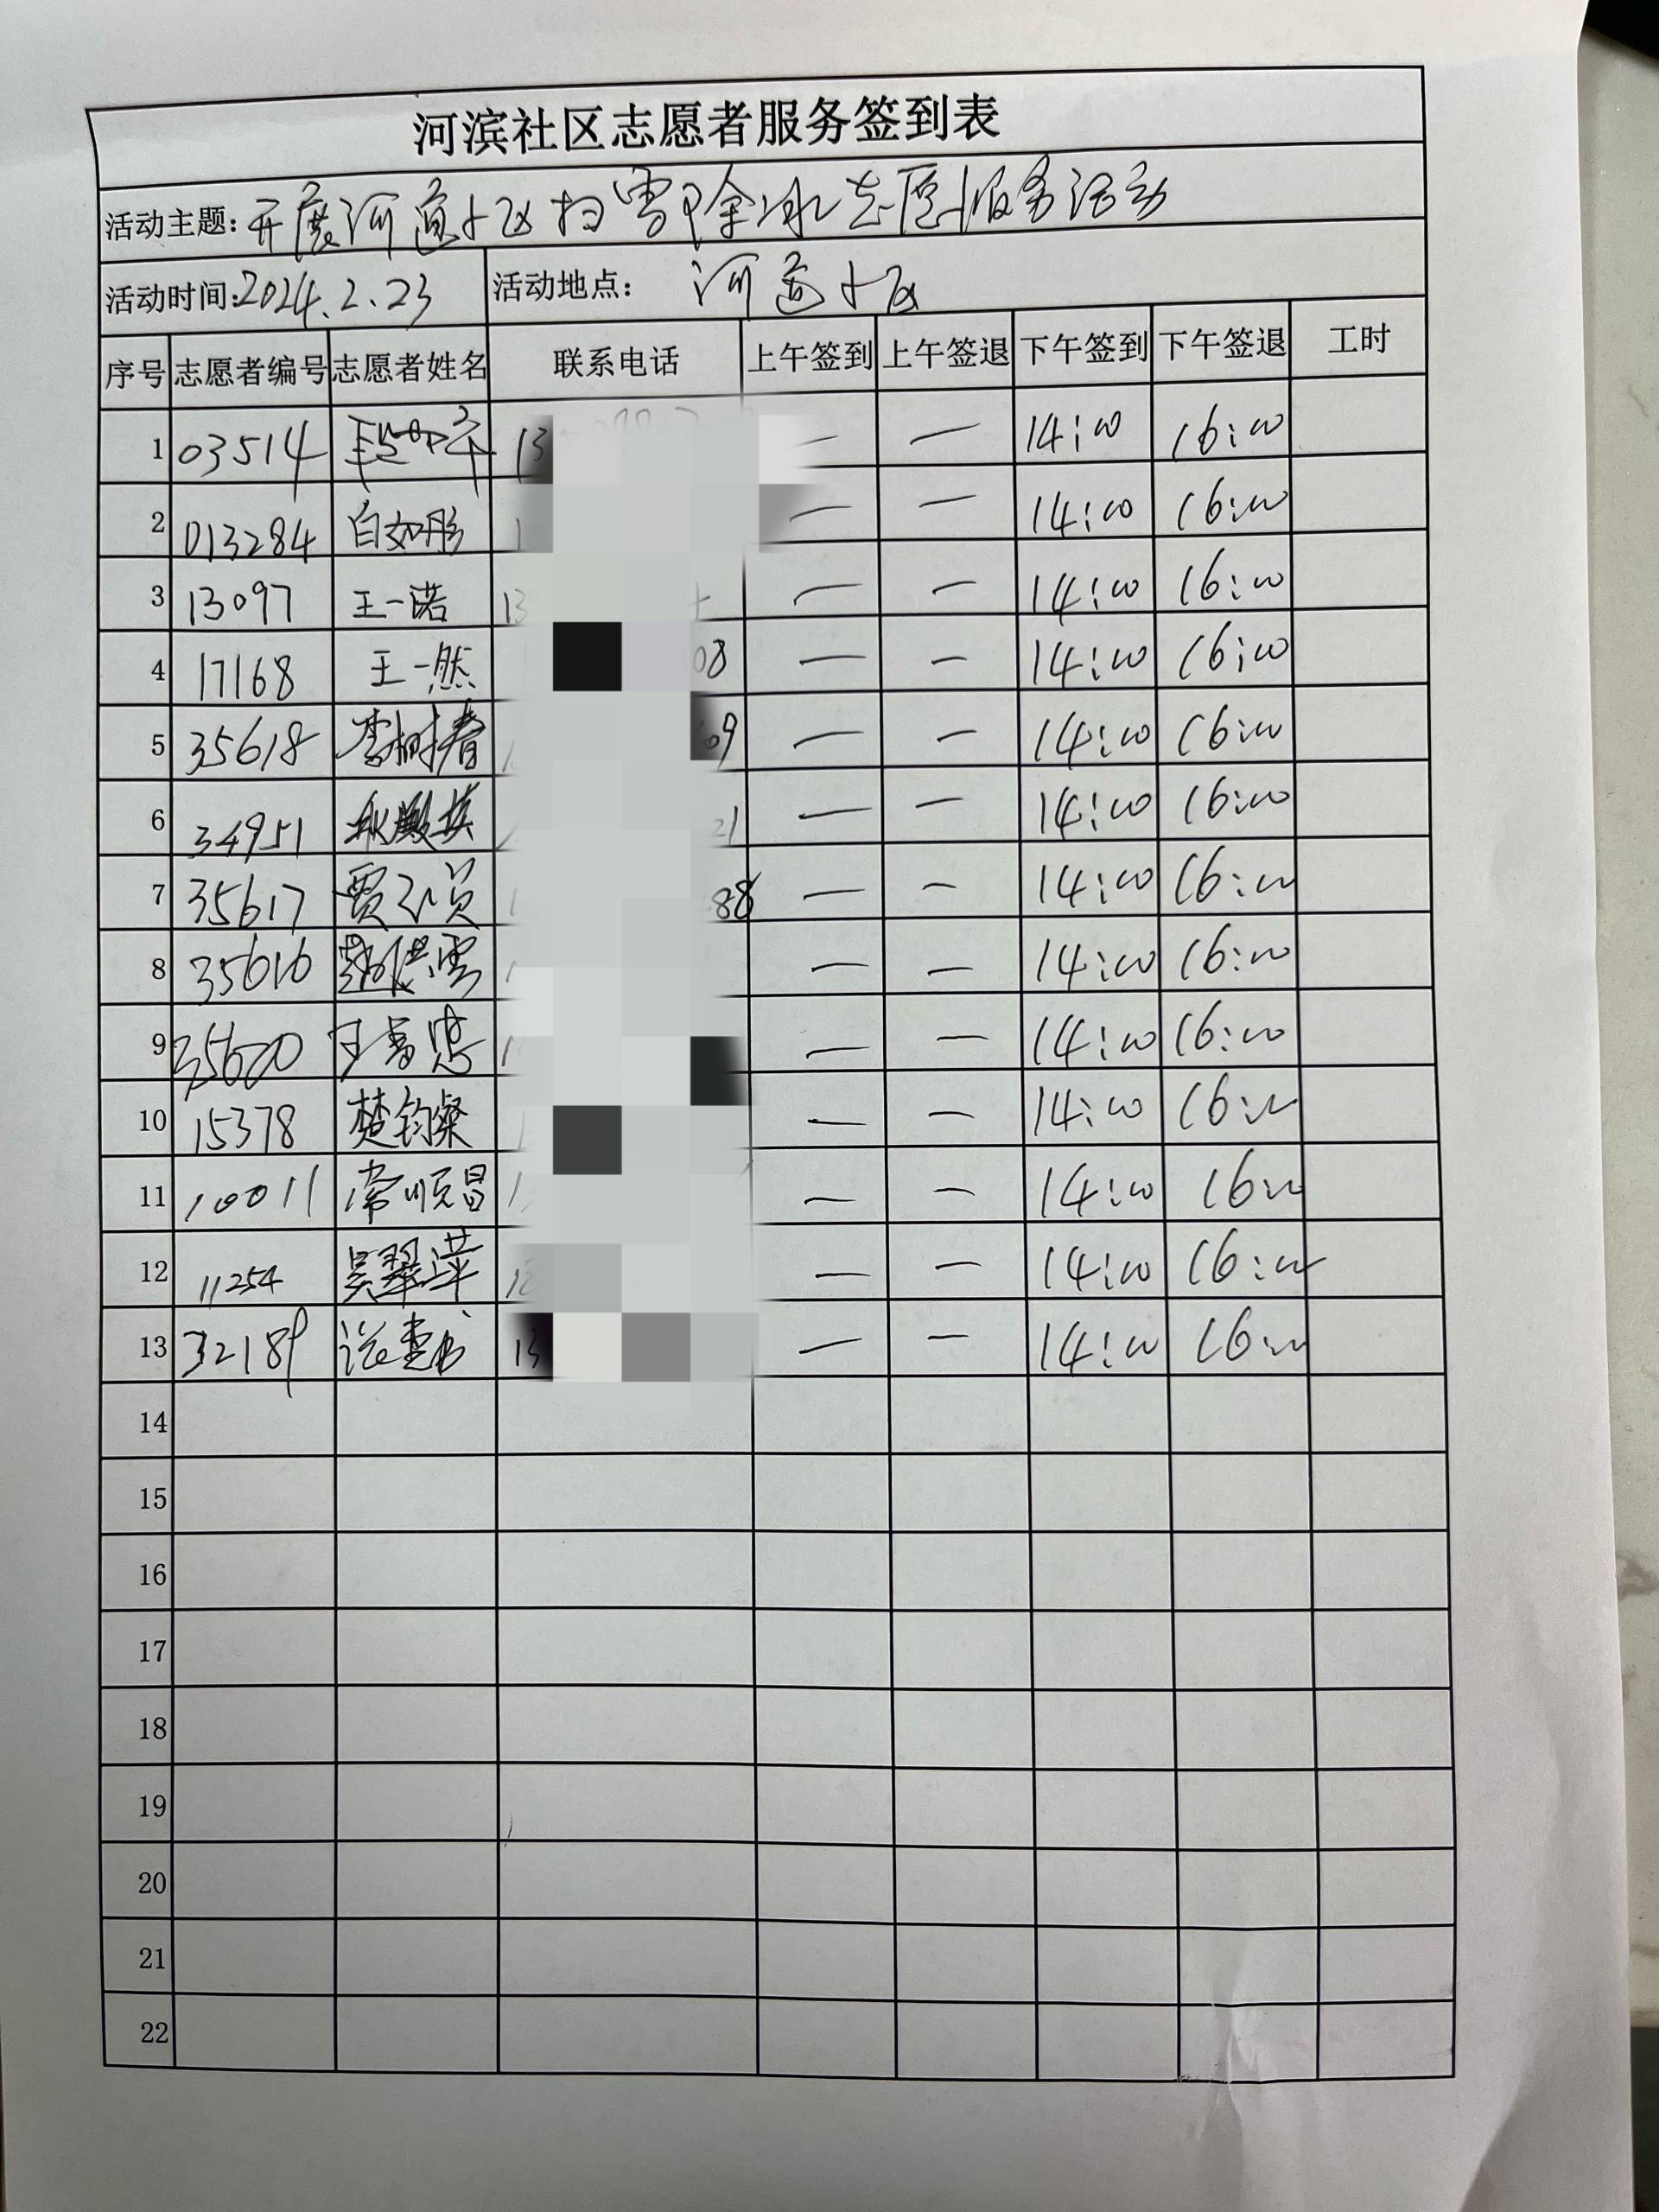 河滨社区志愿者服务签到表
活动主题：开展河道小区扫雪除冰志愿服务活动
活动时间：2024.2.23 活动地点： 河道小区
序号 志愿者编号 志愿者姓名 联系电话 上午签到 上午签退 下午签到 下午签退 工时
1 03514 13 — — 14:00 16:00
2 013284 白如彤 1 — — 14:00 16:00
3 13097 王一诺 13 — — 14:00 16:00
4 17168 王一然 08 — — 14:00 16:00
5 35618 李树春 09 — — 14:00 16:00
6 34951 21 — — 14:00 16:00
7 35617 贾 88 — — 14:00 16:00
8 35616 — — 14:00 16:00
9 35600 王 — — 14:00 16:00
10 15378 楚钧粲 1 — — 14:00 16:00
11 10011 常顺昌 1 — — 14:00 16:00
12 11254 吴翠萍 — — 14:00 16:00
13 32189 13 — — 14:00 16:00
14
15
16
17
18
19
20
21
22